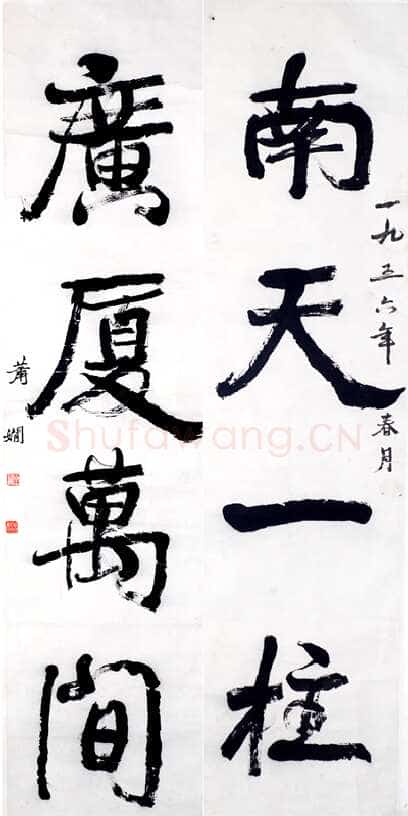 一九五六年春月
南天一柱
廣厦萬間
蕭嫻
Shufawang.CN